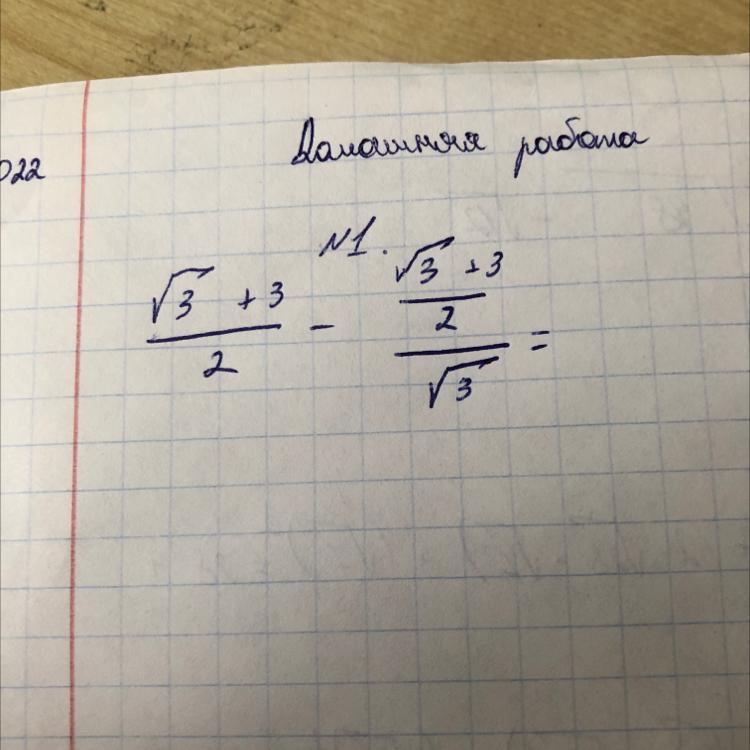 022
Домашняя работа
№1.
(√3 + 3)/2 - ((√3 + 3)/2)/√3 =